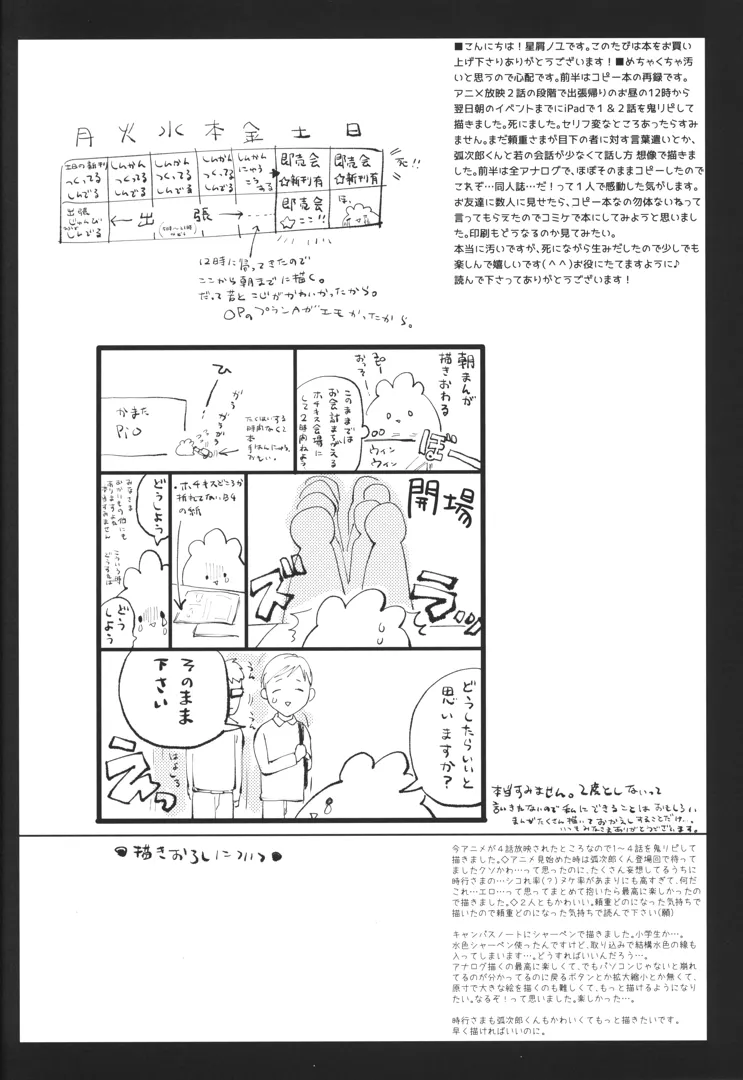 ■こんにちは！星屑ノユです。このたびは本をお買い
上げ下さりありがとうございます！■めちゃくちゃ汚
いと思うので心配です。前半はコピー本の再録です。
アニメ放映２話の段階で出張帰りのお昼の12時から
翌日朝のイベントまでにiPadで１＆２話を鬼リピして
描きました。死にました。セリフ変なところあったらすみ
ません。まだ頼重さまが目下の者に対す言葉遣いとか、
弧次郎くんと若の会話が少なくて話し方 想像で描きま
した。前半は全アナログで、ほぼそのままコピーしたので
これぞ…同人誌…だ！って１人で感動した気がします。
お友達に数人に見せたら、コピー本なの勿体ないねって
言ってもらえたのでコミケで本にしてみようと思いまし
た。印刷もどうなるのか見てみたい。
本当に汚いですが、死にながら生みだしたので少しでも
楽しんで嬉しいです(＾＾)お役にたてますように♪
読んで下さってありがとうございます！
月 火 水 木 金 土 日
土日の新刊
つくってる
しんでる
しんかん
つくってる
しんでる
しんかん
つくってる
しんでる
しんかん
つくってる
しんでる
しんかん
にゅう
こうする
即売会
☆新刊有
即売会
☆新刊有
死!!
出張
じゅんび
しんでる
← 出 張 →
即売会
☆ここ!!
は、
12時に帰ってきたので
ここから朝までに描く。
だって若とこじがかわいかったから。
OPのプランAがエモかったから。
朝まんが
描きおわる
このままでは
お会計まちがえる
ホチキス会場に
して2時間ねよう
ウィン
ウィン
ぼー
ひ
がらがらがら
かまた
PiO
開場
ズ
ラッ
・ホチキスどころか
折れてないB4
の紙
どうしよう
どう
しよう
どうしたらいいと
思いますか？
そのまま
下さい
うんうん
えっ
はよしろ
本当すみません。2度としないって
言いきれないので私にできることはおもしろい
まんがたくさん描いておかえしすることだけ…
いつもみなさまありがとうございます。
●描きおろしについて●
今アニメが４話放映されたところなので１〜４話を鬼リピして
描きました。◇アニメ見始めた時は弧次郎くん登場回で待って
ましたクソかわ…って思ったのに、たくさん妄想してるうちに
時行さまの…シコれ率(？)ヌケ率があまりにも高すぎて、何だ
これ…エロ…って思ってまとめて抱いたら最高に楽しかったの
で描きました。◇２人ともかわいい。頼重どのになった気持ちで
描いたので頼重どのになった気持ちで読んで下さい(願)
キャンパスノートにシャーペンで描きました。小学生か…。
水色シャーペン使ったんですけど、取り込みで結構水色の線も
入ってしまいます…。どうすればいいんだろう…。
アナログ描くの最高に楽しくて、でもパソコンじゃないと崩れ
てるのが分かってるのに戻るボタンとか拡大縮小とか無くて、
原寸で大きな絵を描くのも難しくて、もっと描けるようになり
たい。なるぞ！って思いました。楽しかった…。
時行さまも弧次郎くんもかわいくてもっと描きたいです。
早く描ければいいのに。